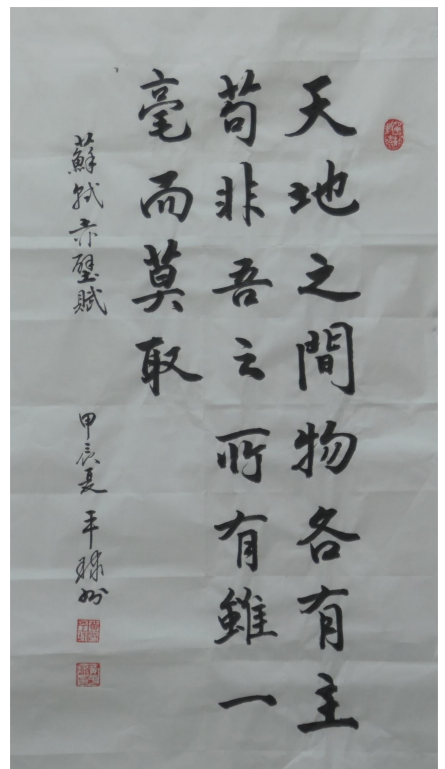 天地之間物各有主
苟非吾之所有雖一
毫而莫取
蘇軾赤壁賦
甲辰夏平